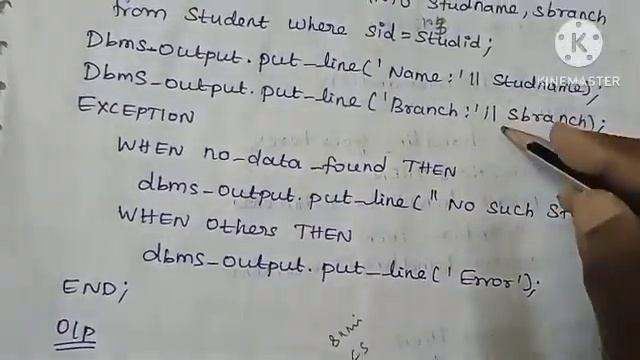 studname, sbranch
from student where sid = studid;
Dbms_output.put_line('Name:'|| studname);
Dbms_output.put_line('Branch:'|| sbranch);
EXCEPTION
WHEN no_data_found THEN
dbms_output.put_line(" No such
WHEN others THEN
dbms_output.put_line('Error');
END;
O/P
KINEMASTER